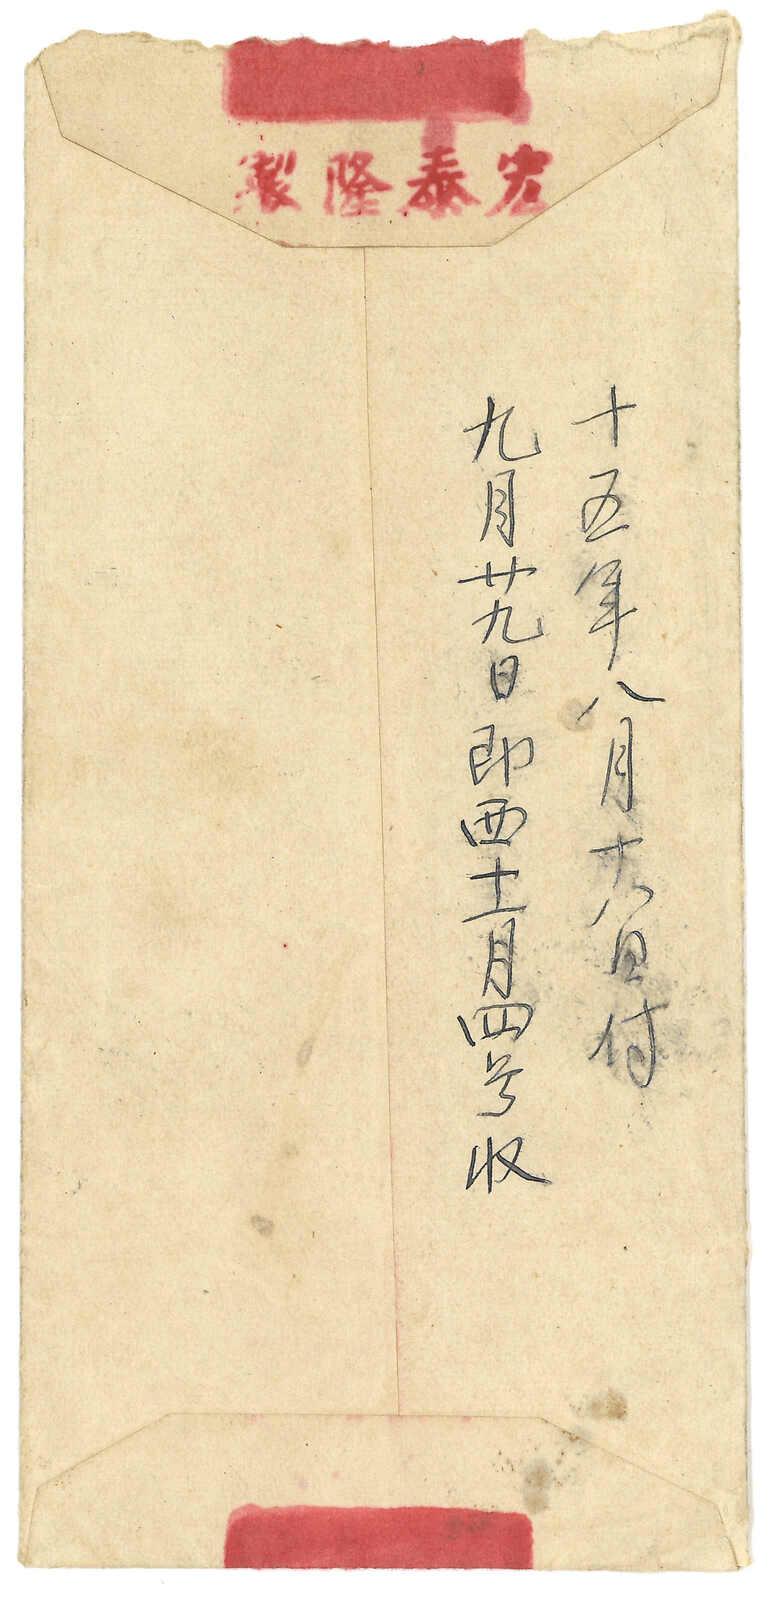 宏泰隆製
十五年八月十八日付
九月廿九日即西十一月四号収